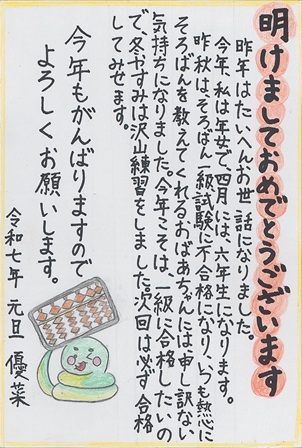 明けましておめでとうございます
昨年はたいへんお世話になりました。
今年、私は年女で、四月には、六年生になります。
昨秋は、そろばん一級試験に不合格になり、いつも熱心に
そろばんを教えてくれるおばあちゃんには申し訳ない
気持ちになりました。今年こそは、一級に合格したいの
で、冬やすみは沢山練習をしました。次回は必ず合格
してみせます。
今年もがんばりますので
よろしくお願いします。
令和七年 元旦 優菜